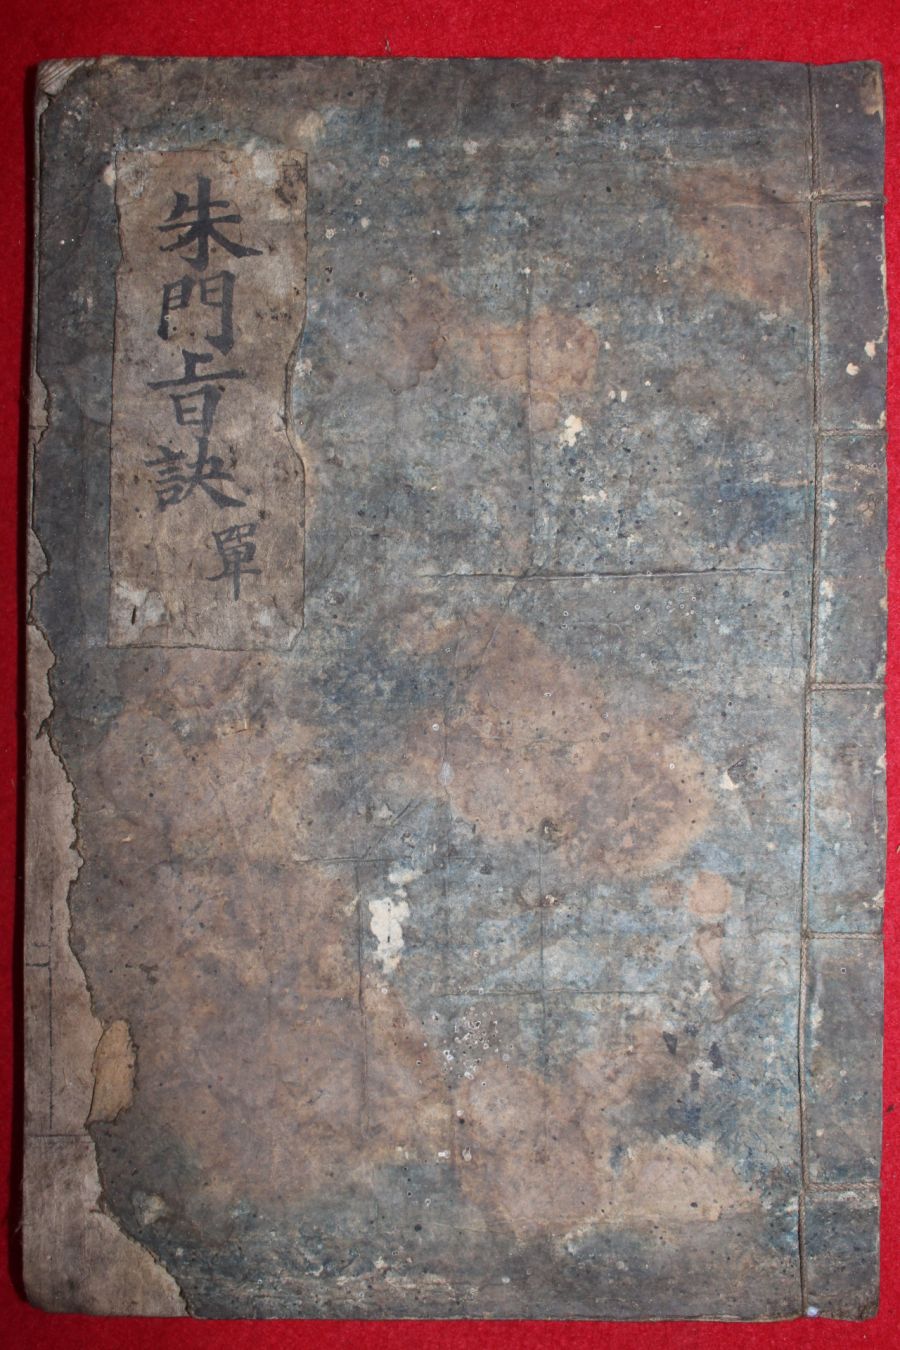 朱門旨訣 單